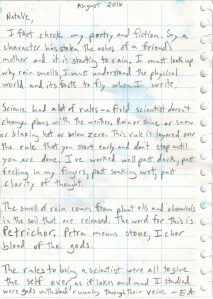 August 2016
Natalie,
I fact check my poetry and fiction. Say a
character has stolen the ashes of a friend's
mother and it is starting to rain, I must look up
why rain smells. I must understand the physical
world and its facts to fly when I write.
Science had a lot of rules - a field scientist doesn't
change plans with the weather. Rain or shine or snow
or blazing hot or below zero. This rule is layered over
the rule that you start early and don't stop until
you are done. I've worked well past dark, past
feeling in my fingers, past soaking wet, past
clarity of thought.
The smell of rain comes from plant oils and chemicals
in the soil that are released. The word for this is
Petrichor. Petra means stone, Ichor
blood of the gods.
The rules to being a scientist were all to give
the self over, as if lakes and mud I studied
were gods with blood running through their veins. - EA